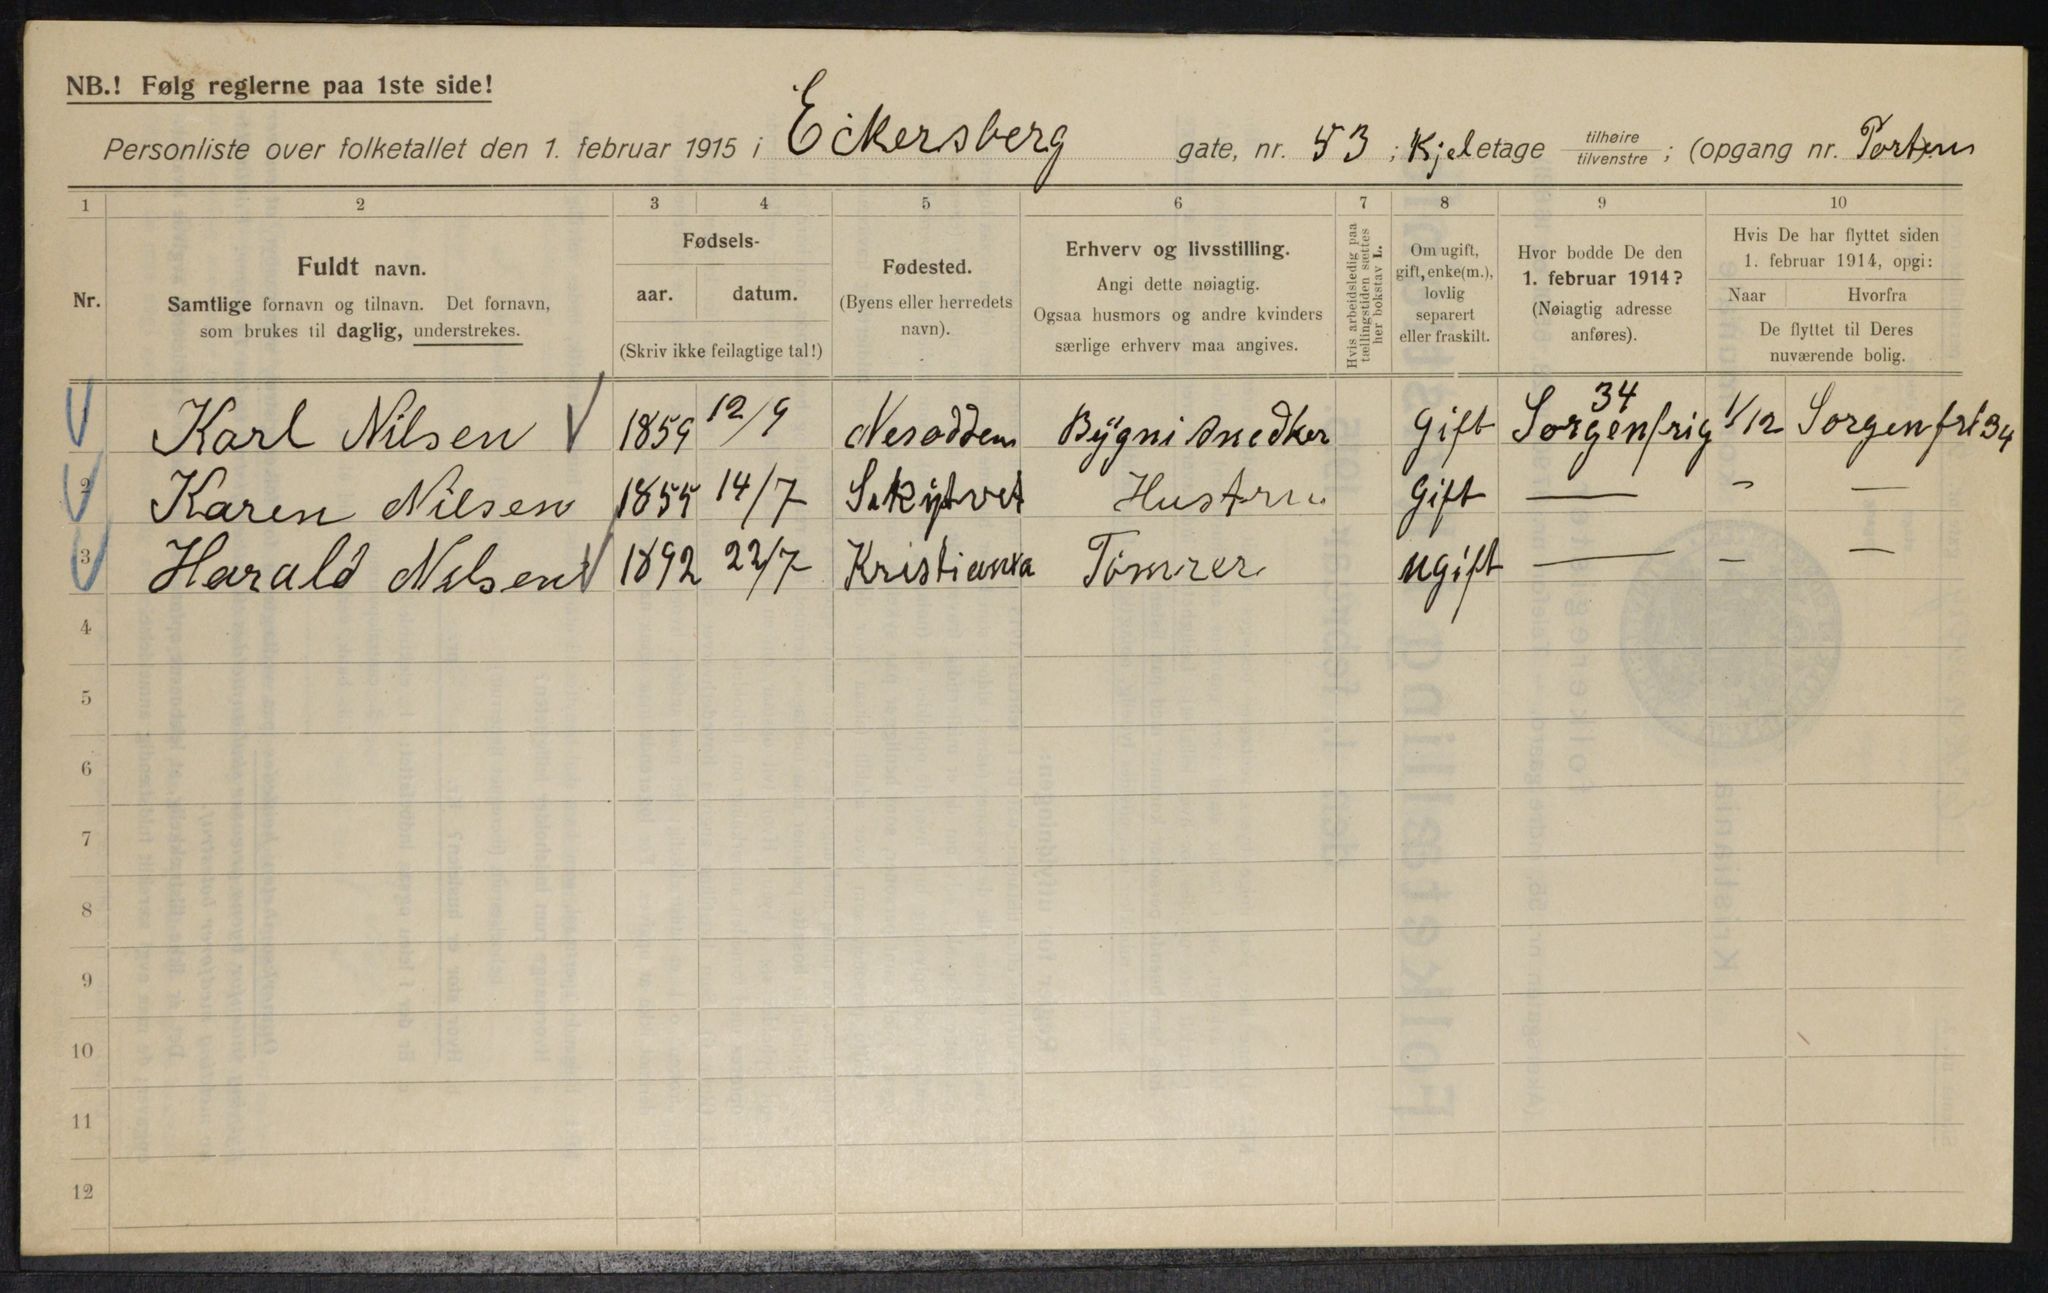 NB.! Følg reglerne paa 1ste side!
Personliste over folketallet den 1. februar 1915 i Eckersberg gate, nr. 53 ; Kjeletage tilhøire/tilvenstre ; (opgang nr. Porten
1 2 3 4 5 6 7 8 9 10
Nr.
Fuldt navn.
Samtlige fornavn og tilnavn. Det fornavn,
som brukes til daglig, understrekes.
Fødsels-
aar. datum.
(Skriv ikke feilagtige tal!)
Fødested.
(Byens eller herredets
navn).
Erhverv og livsstilling.
Angi dette nøiagtig.
Ogsaa husmors og andre kvinders
særlige erhverv maa angives.
Hvis arbeidsledig paa
tællingstiden sættes
her bokstav L.
Om ugift,
gift, enke(m.),
lovlig
separert
eller fraskilt.
Hvor bodde De den
1. februar 1914?
(Nøiagtig adresse
anføres).
Hvis De har flyttet siden
1. februar 1914, opgi:
Naar Hvorfra
De flyttet til Deres
nuværende bolig.
Karl Nilsen 1859 12/9 Nesodden Bygni snedker Gift Sorgenfrig 34 1/12 Sorgenfri 34
2 Karen Nilsen 1855 14/7 Skytvet Hustru Gift — - —
3 Harald Nilsen 1892 22/7 Kristiania Tømrer ugift — - —
4
5
6
7
8
9
10
11
12